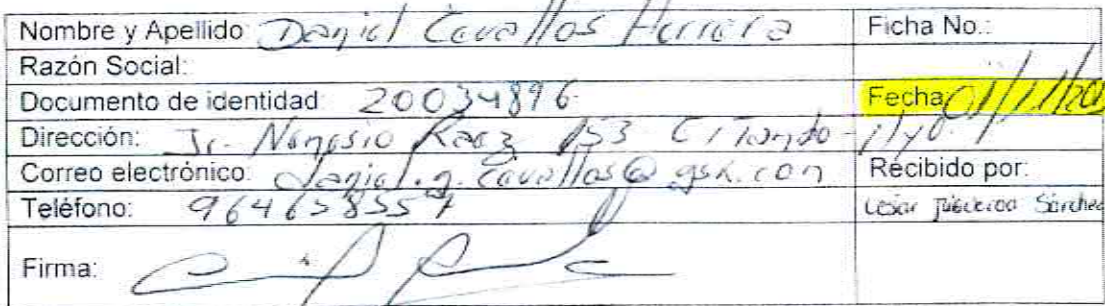 Nombre y Apellido: Daniel Cevallos Herrera Ficha No.:
Razón Social:
Documento de identidad: 20034896 Fecha: 01/11/20
Dirección: Jr. 153 El Tambo - Hyo.
Correo electrónico: daniel.g.cevallos@gsk.com Recibido por:
Teléfono: César Sánchez
Firma: